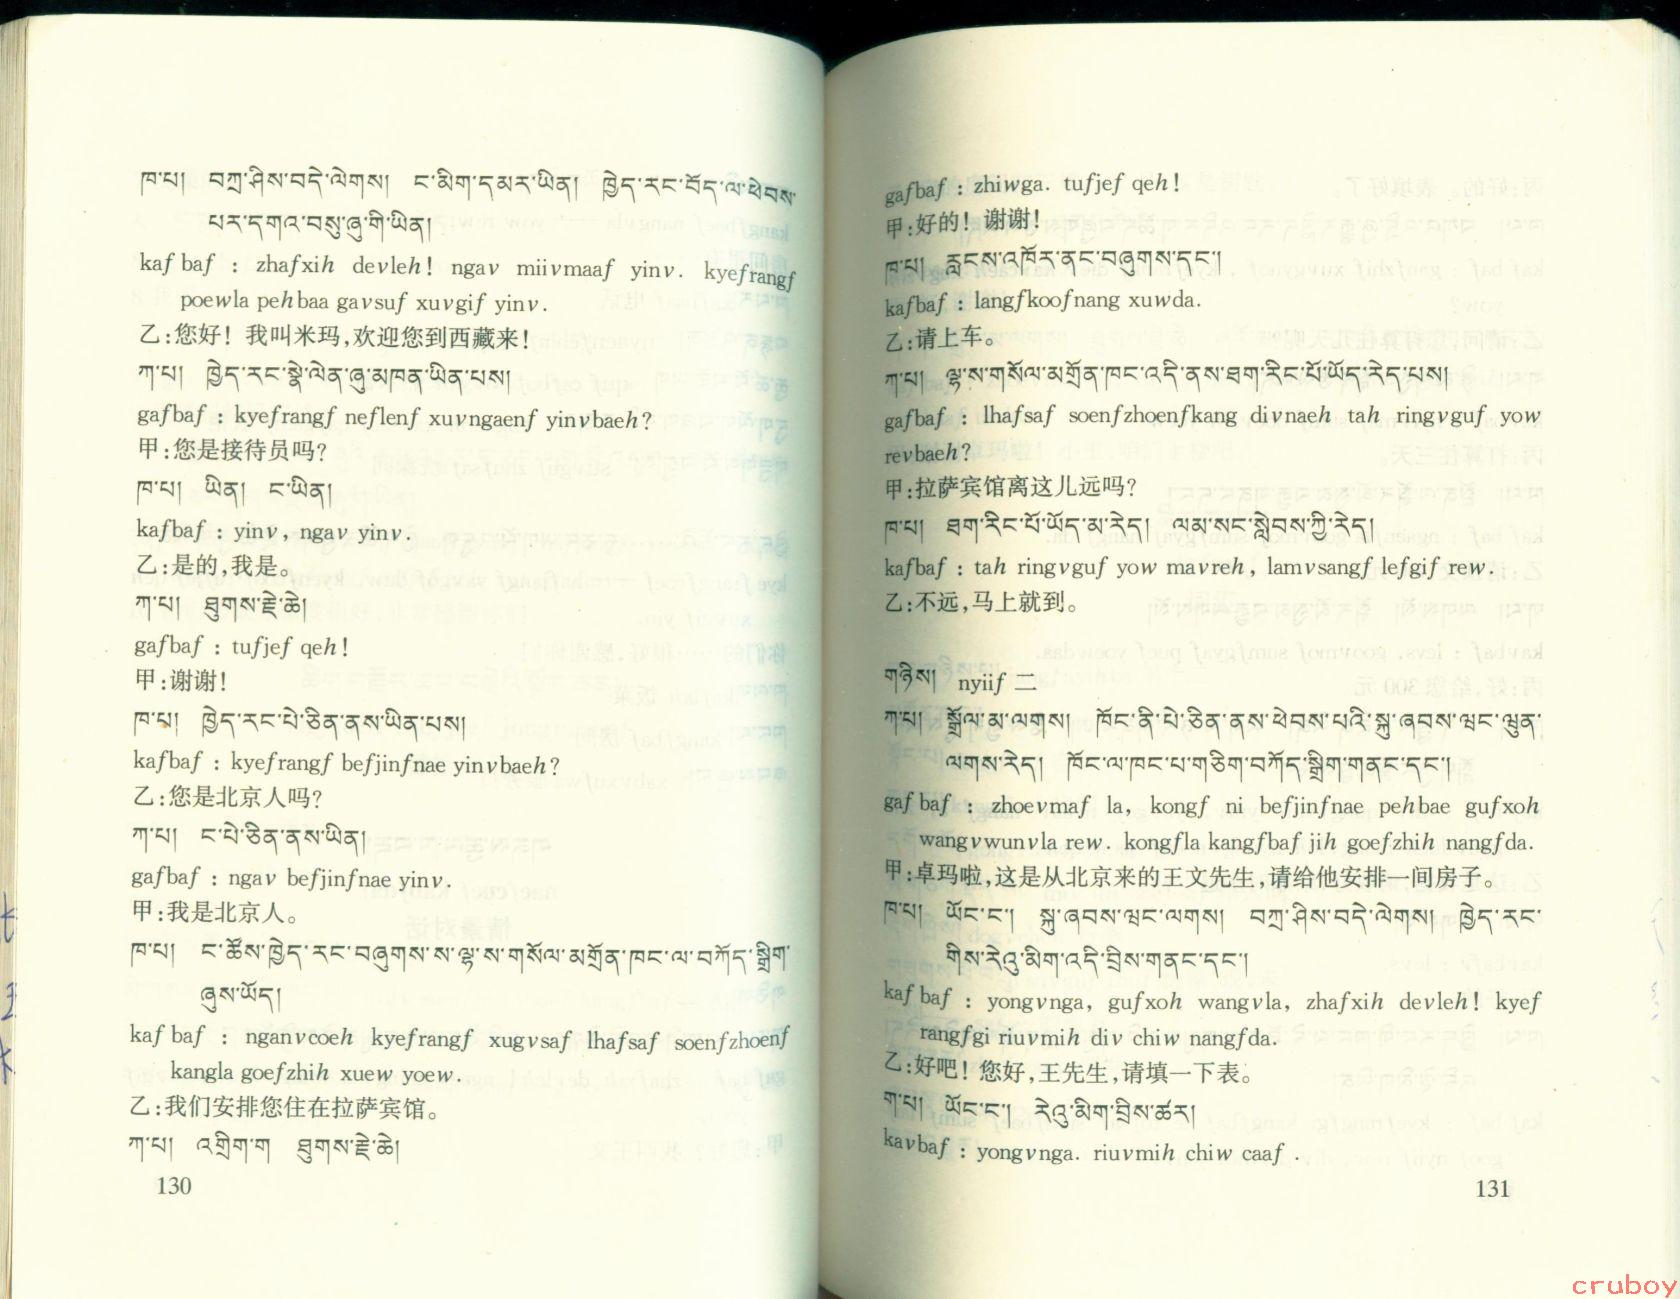 ཁ་པ། བཀྲ་ཤིས་བདེ་ལེགས། ང་མིག་དམར་ཡིན། ཁྱེད་རང་བོད་ལ་ཕེབས་
པར་དགའ་བསུ་ཞུ་གི་ཡིན།
kafbaf : zhafxih devleh! ngav miivmaaf yinv. kyefrangf
poewla pehbaa gavsuf xuvgif yinv.
乙:您好! 我叫米玛,欢迎您到西藏来!
ཀ་པ། ཁྱེད་རང་སྣེ་ལེན་ཞུ་མཁན་ཡིན་པས།
gafbaf : kyefrangf neflenf xuvngaenf yinvbaeh?
甲:您是接待员吗?
ཁ་པ། ཡིན། ང་ཡིན།
kafbaf : yinv, ngav yinv.
乙:是的,我是。
ཀ་པ། ཐུགས་རྗེ་ཆེ།
gafbaf : tufjef qeh!
甲:谢谢!
ཁ་པ། ཁྱེད་རང་པེ་ཅིན་ནས་ཡིན་པས།
kafbaf : kyefrangf befjinfnae yinvbaeh?
乙:您是北京人吗?
ཀ་པ། ང་པེ་ཅིན་ནས་ཡིན།
gafbaf : ngav befjinfnae yinv.
甲:我是北京人。
ཁ་པ། ང་ཚོས་ཁྱེད་རང་བཞུགས་ས་ལྷ་ས་གསོལ་མགྲོན་ཁང་ལ་བཀོད་སྒྲིག་
ཞུས་ཡོད།
kafbaf : nganvcoeh kyefrangf xugvsaf lhafsaf soenfzhoenf
kangla goefzhih xuew yoew.
乙:我们安排您住在拉萨宾馆。
ཀ་པ། འགྲིག་ག ཐུགས་རྗེ་ཆེ།
130
gafbaf : zhiwga. tufjef qeh!
甲:好的! 谢谢!
ཁ་པ། རླངས་འཁོར་ནང་བཞུགས་དང་།
kafbaf : langfkoofnang xuwda.
乙:请上车。
ཀ་པ། ལྷ་ས་གསོལ་མགྲོན་ཁང་འདི་ནས་ཐག་རིང་པོ་ཡོད་རེད་པས།
gafbaf : lhafsaf soenfzhoenfkang divnaeh tah ringvguf yow
revbaeh?
甲:拉萨宾馆离这儿远吗?
ཁ་པ། ཐག་རིང་པོ་ཡོད་མ་རེད། ལམ་སང་སླེབས་ཀྱི་རེད།
kafbaf : tah ringvguf yow mavreh, lamvsangf lefgif rew.
乙:不远,马上就到。
གཉིས། nyiif 二
ཀ་པ། སྒྲོལ་མ་ལགས། ཁོང་ནི་པེ་ཅིན་ནས་ཕེབས་པའི་སྐུ་ཞབས་ཝང་ཝུན་
ལགས་རེད། ཁོང་ལ་ཁང་པ་གཅིག་བཀོད་སྒྲིག་གནང་དང་།
gafbaf : zhoevmaf la, kongf ni befjinfnae pehbae gufxoh
wangvwunvla rew. kongfla kangfbaf jih goefzhih nangfda.
甲:卓玛啦,这是从北京来的王文先生,请给他安排一间房子。
ཁ་པ། ཡོང་ང་། སྐུ་ཞབས་ཝང་ལགས། བཀྲ་ཤིས་བདེ་ལེགས། ཁྱེད་རང་
གིས་རེའུ་མིག་འདི་བྲིས་གནང་དང་།
kafbaf : yongvnga, gufxoh wangvla, zhafxih devleh! kyef
rangfgi riuvmih div chiw nangfda.
乙:好吧! 您好,王先生,请填一下表。
ག་པ། ཡོང་ང་། རེའུ་མིག་བྲིས་ཚར།
kavbaf : yongvnga. riuvmih chiw caaf .
131
cruboy